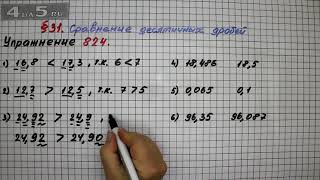 4DA5.RU
§31. Сравнение десятичных дробей
Упражнение 824.
1) 16,8 < 17,3 , т.к. 6 < 7
4) 18,486 18,5
2) 12,7 > 12,5 , т.к. 7 > 5
5) 0,065 0,1
3) 24,92 > 24,9 ,
6) 96,35 96,087
24,92 > 24,90